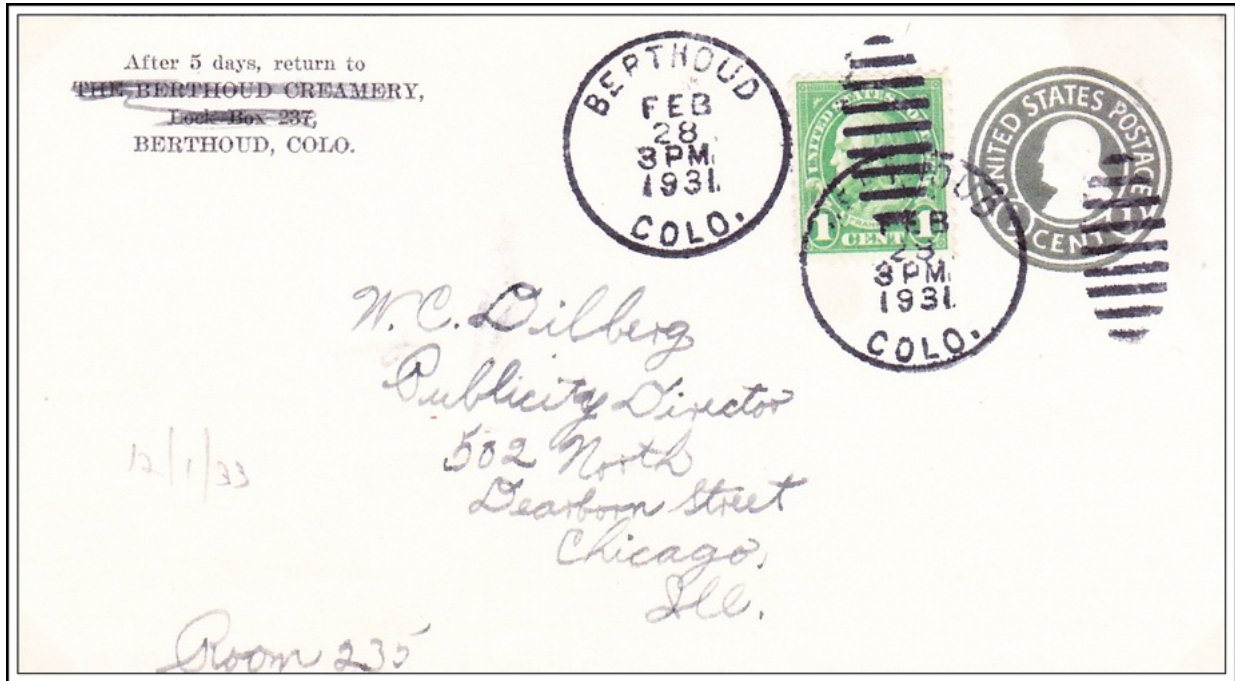 After 5 days, return to
THE BERTHOUD CREAMERY,
Lock Box 237,
BERTHOUD, COLO.
BERTHOUD
FEB
28
3 PM
1931
COLO.
UNITED STATES POSTAGE
1 CENT 1
FEB
28
3 PM
1931
COLO.
UNITED STATES POSTAGE
CENT
W. C. Dilberg
Publicity Director
502 North
Dearborn Street
Chicago,
Ill.
12/1/33
Room 235